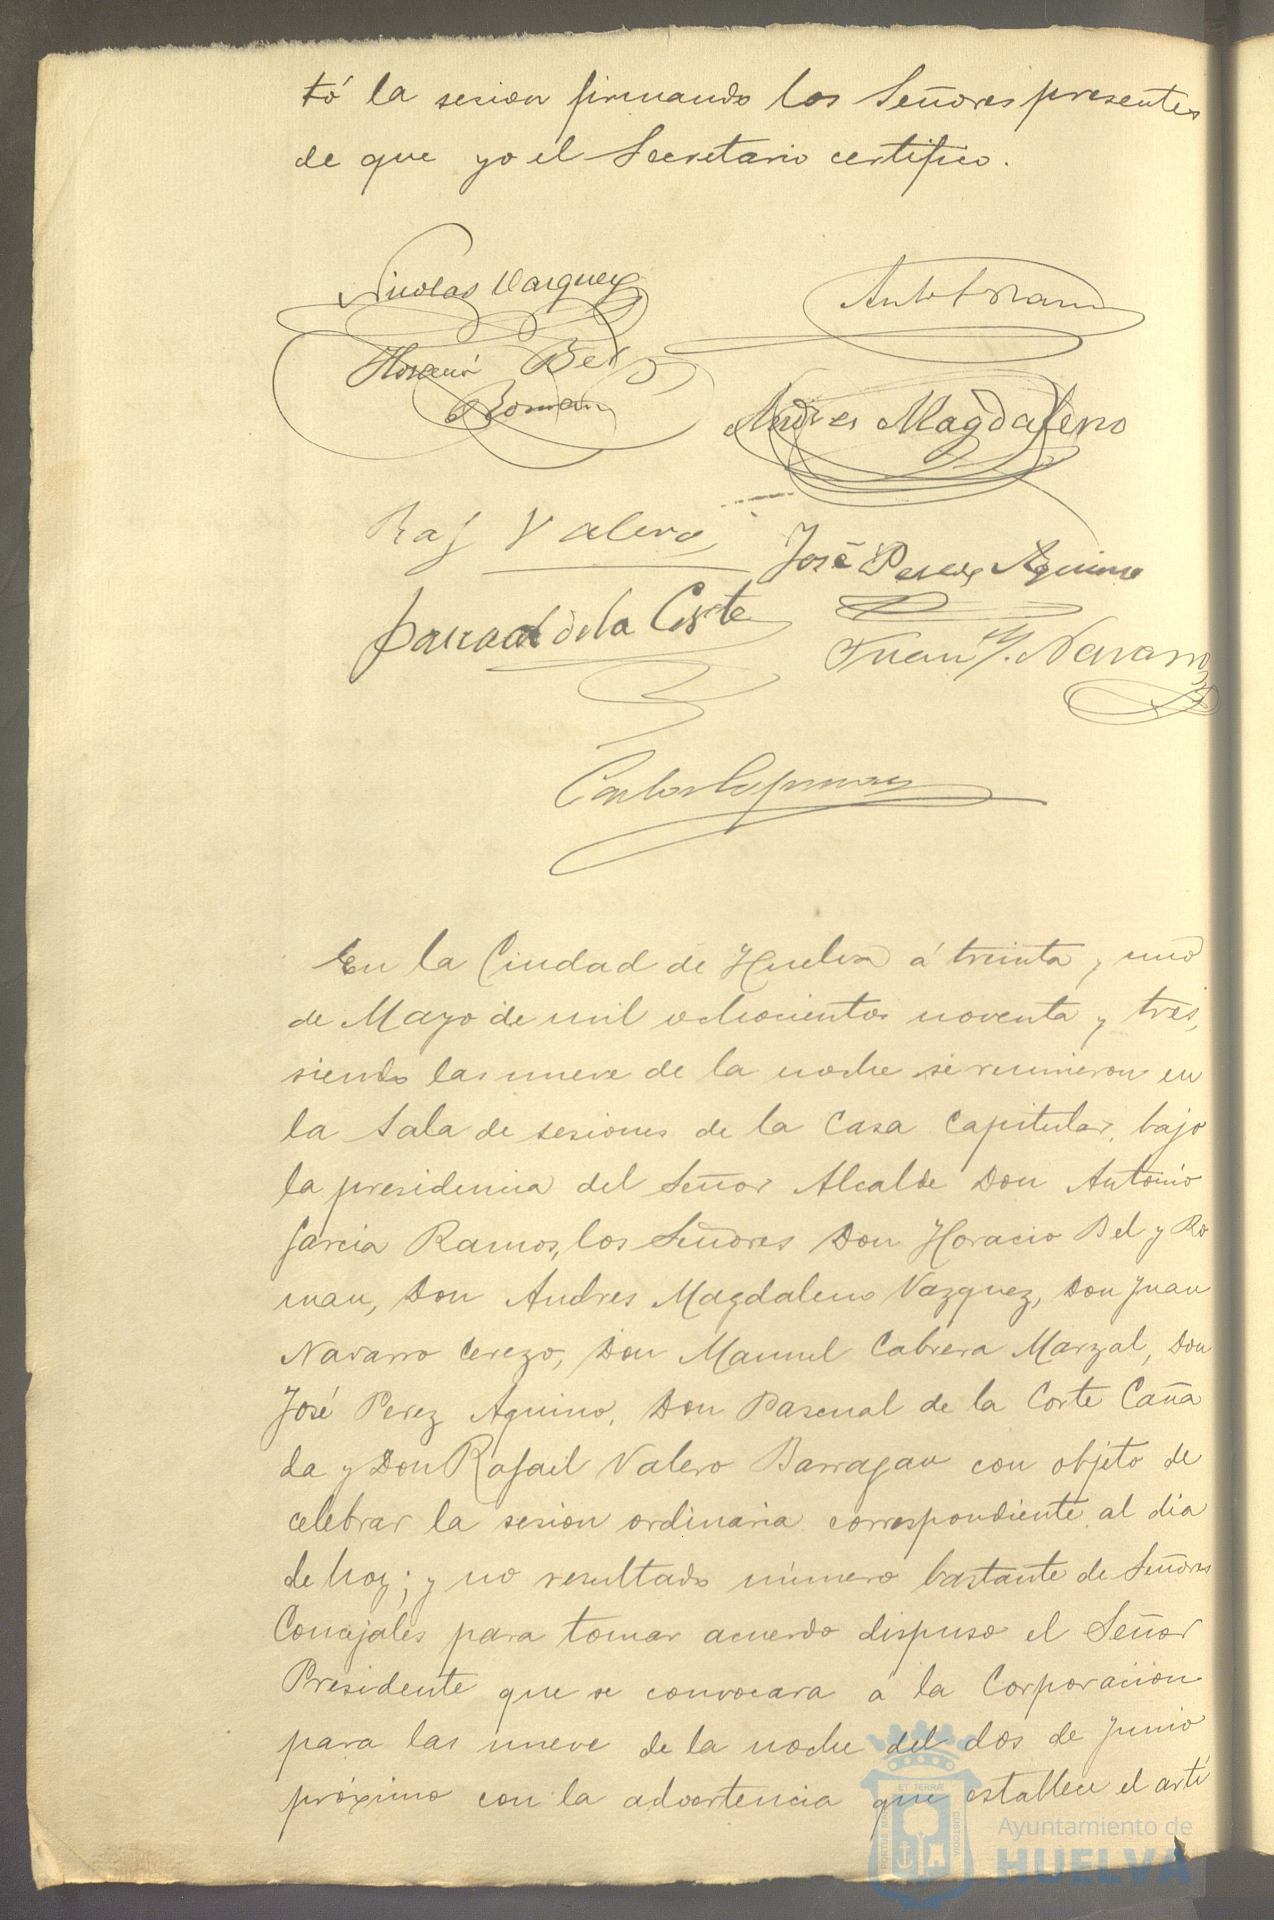 tó la sesion firmando los Señores presentes
de que yo el Secretario certifico.
Nicolas Vazquez
Horacio Bel
Roman
Andres Magdaleno
Raf Valero
José Perez Aquino
Pascual de la Corte
Juan N. Navarro
En la Ciudad de Huelva á treinta y uno
de Mayo de mil ochocientos noventa y tres,
siendo las nueve de la noche se reunieron en
la Sala de sesiones de la Casa Capitular, bajo
la presidencia del Señor Alcalde Don Antonio
Garcia Ramos, los Señores Don Horacio Bel y Ro
man, Don Andres Magdaleno Vazquez, Don Juan
Navarro Cerezo, Don Manuel Cabrera Marzal, Don
José Perez Aquino, Don Pascual de la Corte Caña
da y Don Rafael Valero Barragan con objeto de
celebrar la sesion ordinaria correspondiente al dia
de hoy; y no resultado número bastante de Señores
Concejales para tomar acuerdo dispuso el Señor
Presidente que se convocara á la Corporacion
para las nueve de la noche del dos de Junio
próximo con la advertencia que establece el artí
Ayuntamiento de
HUELVA